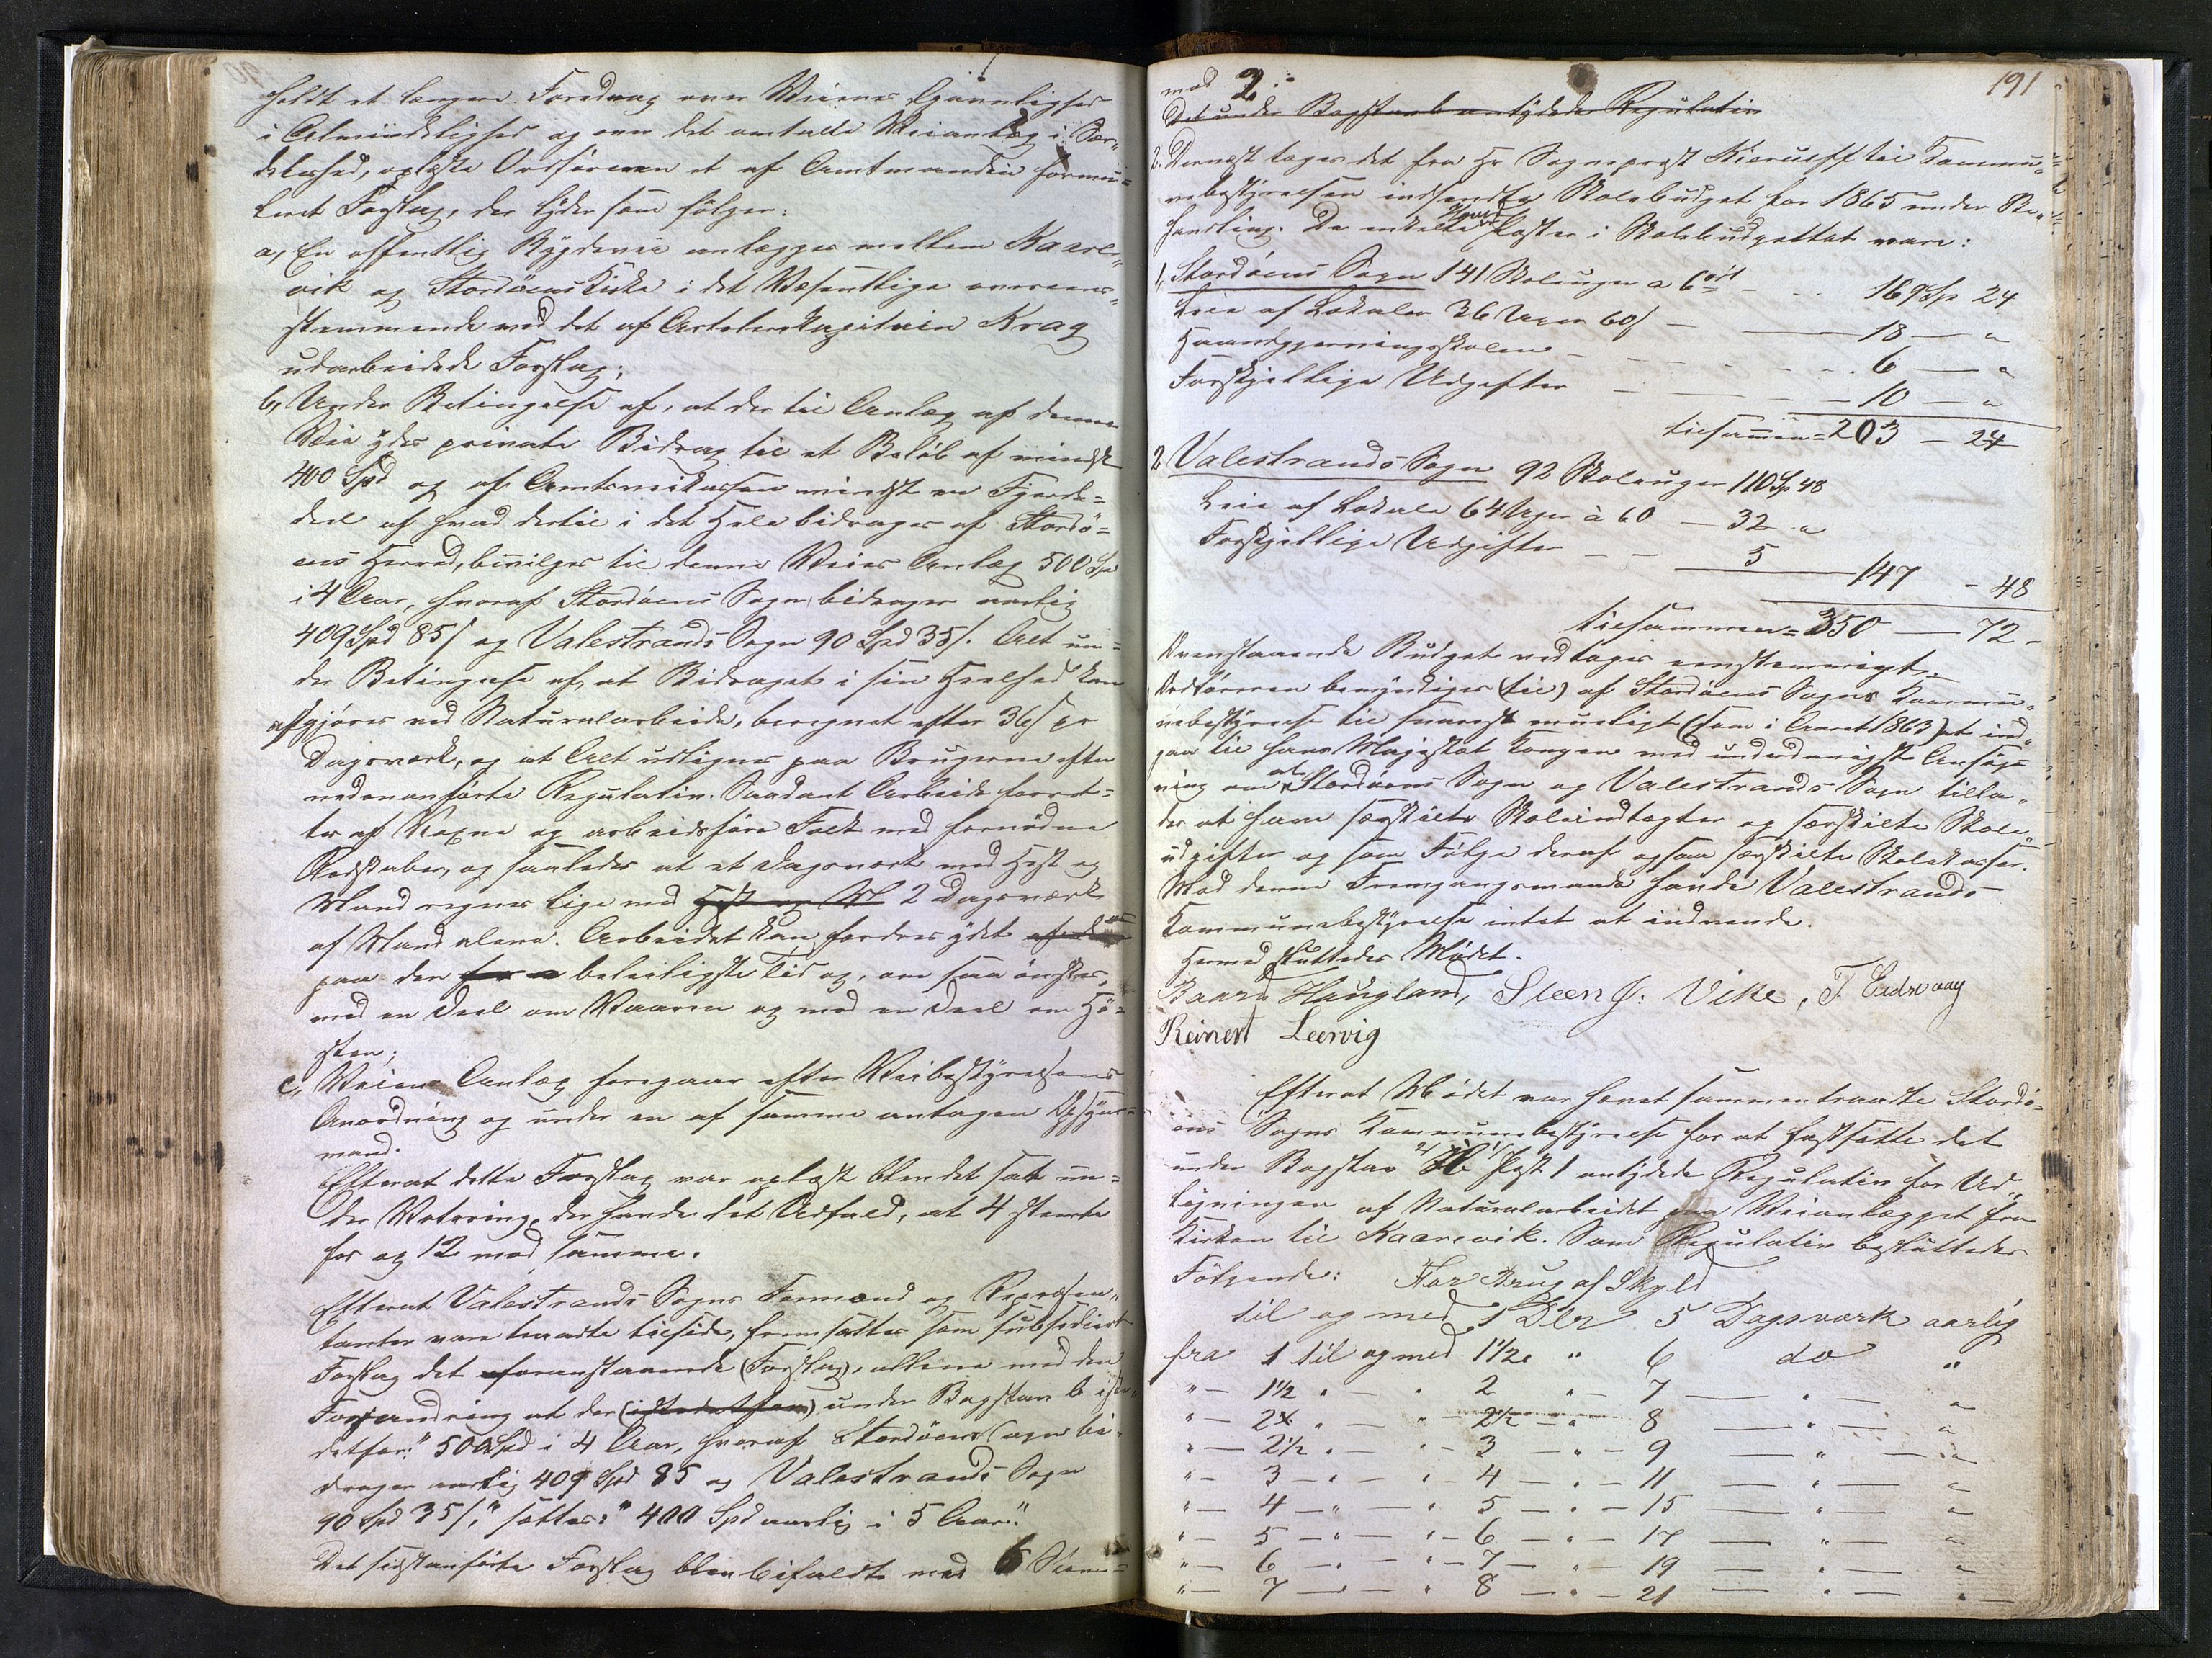 holdt et længere Foredrag over Veienes Gavnlighed
i Almindelighed og over det omtalte Veianlæg i Sær„
deleshed, oplæste Ordføreren et af Amtmanden formu=
leret Forslag, der lyder som følger:
a, En offentlig Bygdevei anlægges mellem Kaare„
vik og Stordøens Kirke i det Væsentlige overeens„
stemmende med det af Artelerikapitain Krag
udarbeidede Forslag;
b, Under Betingelse af, at der til Anlæg af denne
Vei ydes private Bidrag til et Beløb af mindst
400 Spd og af Amtsveikassen mindst en Fjerde=
deel af hvad dertil i det Hele bidrages af Stordø=
ens Herred, bevilges til denne Veies Anlæg 500 Spd
i 4 Aar, hvoraf Stordøens Sogn bidrager aarlig
409 Spd 85 s og Valestrands Sogn 90 Spd 35 s. Alt un=
der Betingelse af, at Bidraget i sin Heelhed kan
afgjøres ved Naturalarbeide, beregnet efter 36 s pr
Dagsværk, og at Alt udlignes paa Brugerne efter
nedenanførte Regulativ. Saadant Arbeide forret=
tes af Voxne og arbeidsføre Folk med fornødne
Redskaber, og saaledes at et Dagsværk med Hest og
Mand regnes lige med Hest og M 2 Dagsværk
af Mand alene. Arbeidet kan fordres ydet
paa den for beleiligste Tid og, om saa ønskes,
med en Deel om Vaaren og med en Deel om Hø=
sten;
c, Veiens Anlæg foregaar efter Veibestyrelsens
Anordning og under en af samme antagen Opsyns=
mand.
Efterat dette Forslag var oplæst blev det sat un=
der Votering, der havde det Udfald, at 4 stemte
for og 12 mod samme.
Efterat Valestrands Sogns Formænd og Repræsen„
tanter vare traadte tilside, fremsattes som subsidiært
Forslag det foranstaaende (Forslag), allene med den
Forandring at der (istedetfor) under Bogstav b iste„
detfor: "500 Spd i 4 Aar, hvoraf Stordøens Sogn bi„
drager aarlig 409 Spd 85 og Valestrands Sogn
90 Spd 35 s," sættes: "400 Spd aarlig i 5 Aar".
Det sidstanførte Forslag blev bifaldt med 6 Stem=
191
mod 2.
Det under Bogstav b antydede Regulativ
2. Dernæst toges det fra Hr Sognepræst Kierulff til Kommu„
nebestyrelsen indsendte Skolebudget for 1865 under Be„
handling. De enkelte Poster i Skolebudgettet vare:
1, Stordøens Sogn 141 Skoleuger a 6 ort - - - 169 Sp 24
Leie af Lokaler 36 Uger 60 s - — 18 — "
Haandgjerningsskolen - - - - 6 — "
Forskjellige Udgifter - - - 10 — "
tilsammen = 203 — 24
2 Valestrands Sogn 92 Skoleuger 110 Sp 48
Leie af Lokale 64 Uger à 60 — 32 "
Forskjellige Udgifter — — 5 — 147 - 48
tilsammen = 350 — 72 -
Ovenstaaende Budget vedtages eenstemmigt.
Ordføreren bemyndiges (til) af Stordøens Sogns Kommu„
nebestyrelse til snarest mueligt (som i Aaret 1863) at ind„
gaa til hans Majestæt Kongen med underdanigst Ansøg„
ning om at Stordøens Sogn og Valestrands Sogn tilla„
des at have særskilte Skoleindtægter og særskilte Skole„
udgifter og som Følge deraf ogsaa særskilte Skolekasser.
Mod denne Fremgangsmaade havde Valestrands
Kommunebestyrelse intet at indvende.
Hermed sluttedes Mødet.
Baard Haugland, Steen J: Vike, T. Eidsvaag
Reinert Leervig
Efterat Mødet var hævet sammentraadte Stordø=
ens Sogns Kommunebestyrelse for at fastsætte det
under Bogstav "b" Post 1 antydede Regulativ for Ud„
ligningen af Naturalarbeidet paa Veianlægget fra
Kirken til Kaarevik. Som Regulativ besluttedes
Følgende: For Brug af Skyld
til og med 1 Dlr 5 Dagsværk aarlig
fra 1 til og med 1½ " 6 do "
" — 1½ " — " 2 " — 7 — " — "
" — 2 " — " — 2½ — " 8 — " — "
" — 2½ " — " — 3 — " — 9 — " — "
" — 3 — " — " — 4 — " — 11 — " — "
" — 4 — " — " 5 — " — 15 — " — "
" — 5 — " — " — 6 — " — 17 — " — "
" — 6 — " — " — 7 — " — 19 — " — "
" — 7 — " — " 8 — " — 21 — " — "